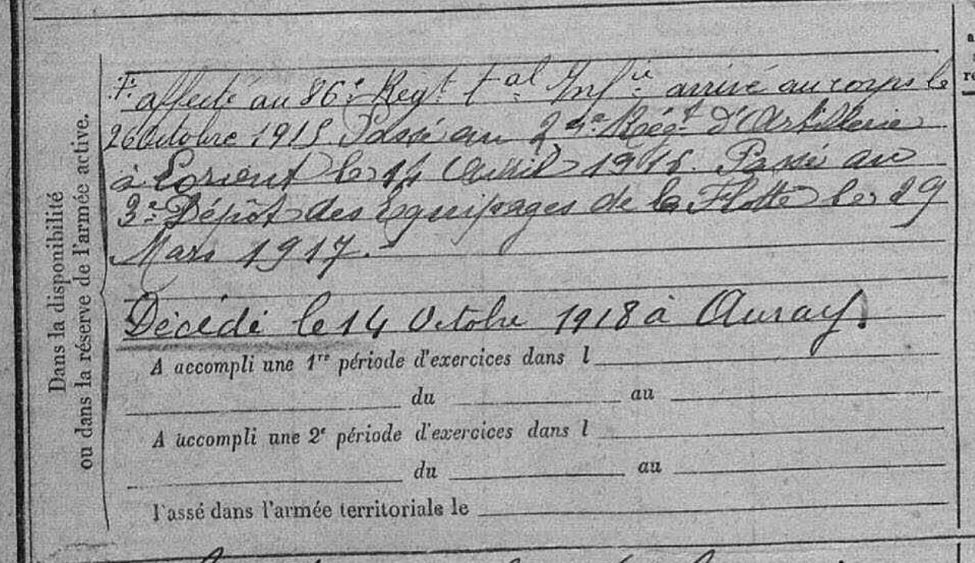 Dans la disponibilité
ou dans la réserve de l'armée active.
affecté au 86e Régt tal Infie arrivé au corps le
26 Octobre 1915. Passé au Régt d'Artillerie
à Lorient le 14 Avril 1916. Passé au
3e Dépôt des Equipages de la Flotte le 29
Mars 1917.
Décédé le 14 Octobre 1918 à Auray.
A accompli une 1re période d'exercices dans l
du au
A accompli une 2e période d'exercices dans l
du au
Passé dans l'armée territoriale le